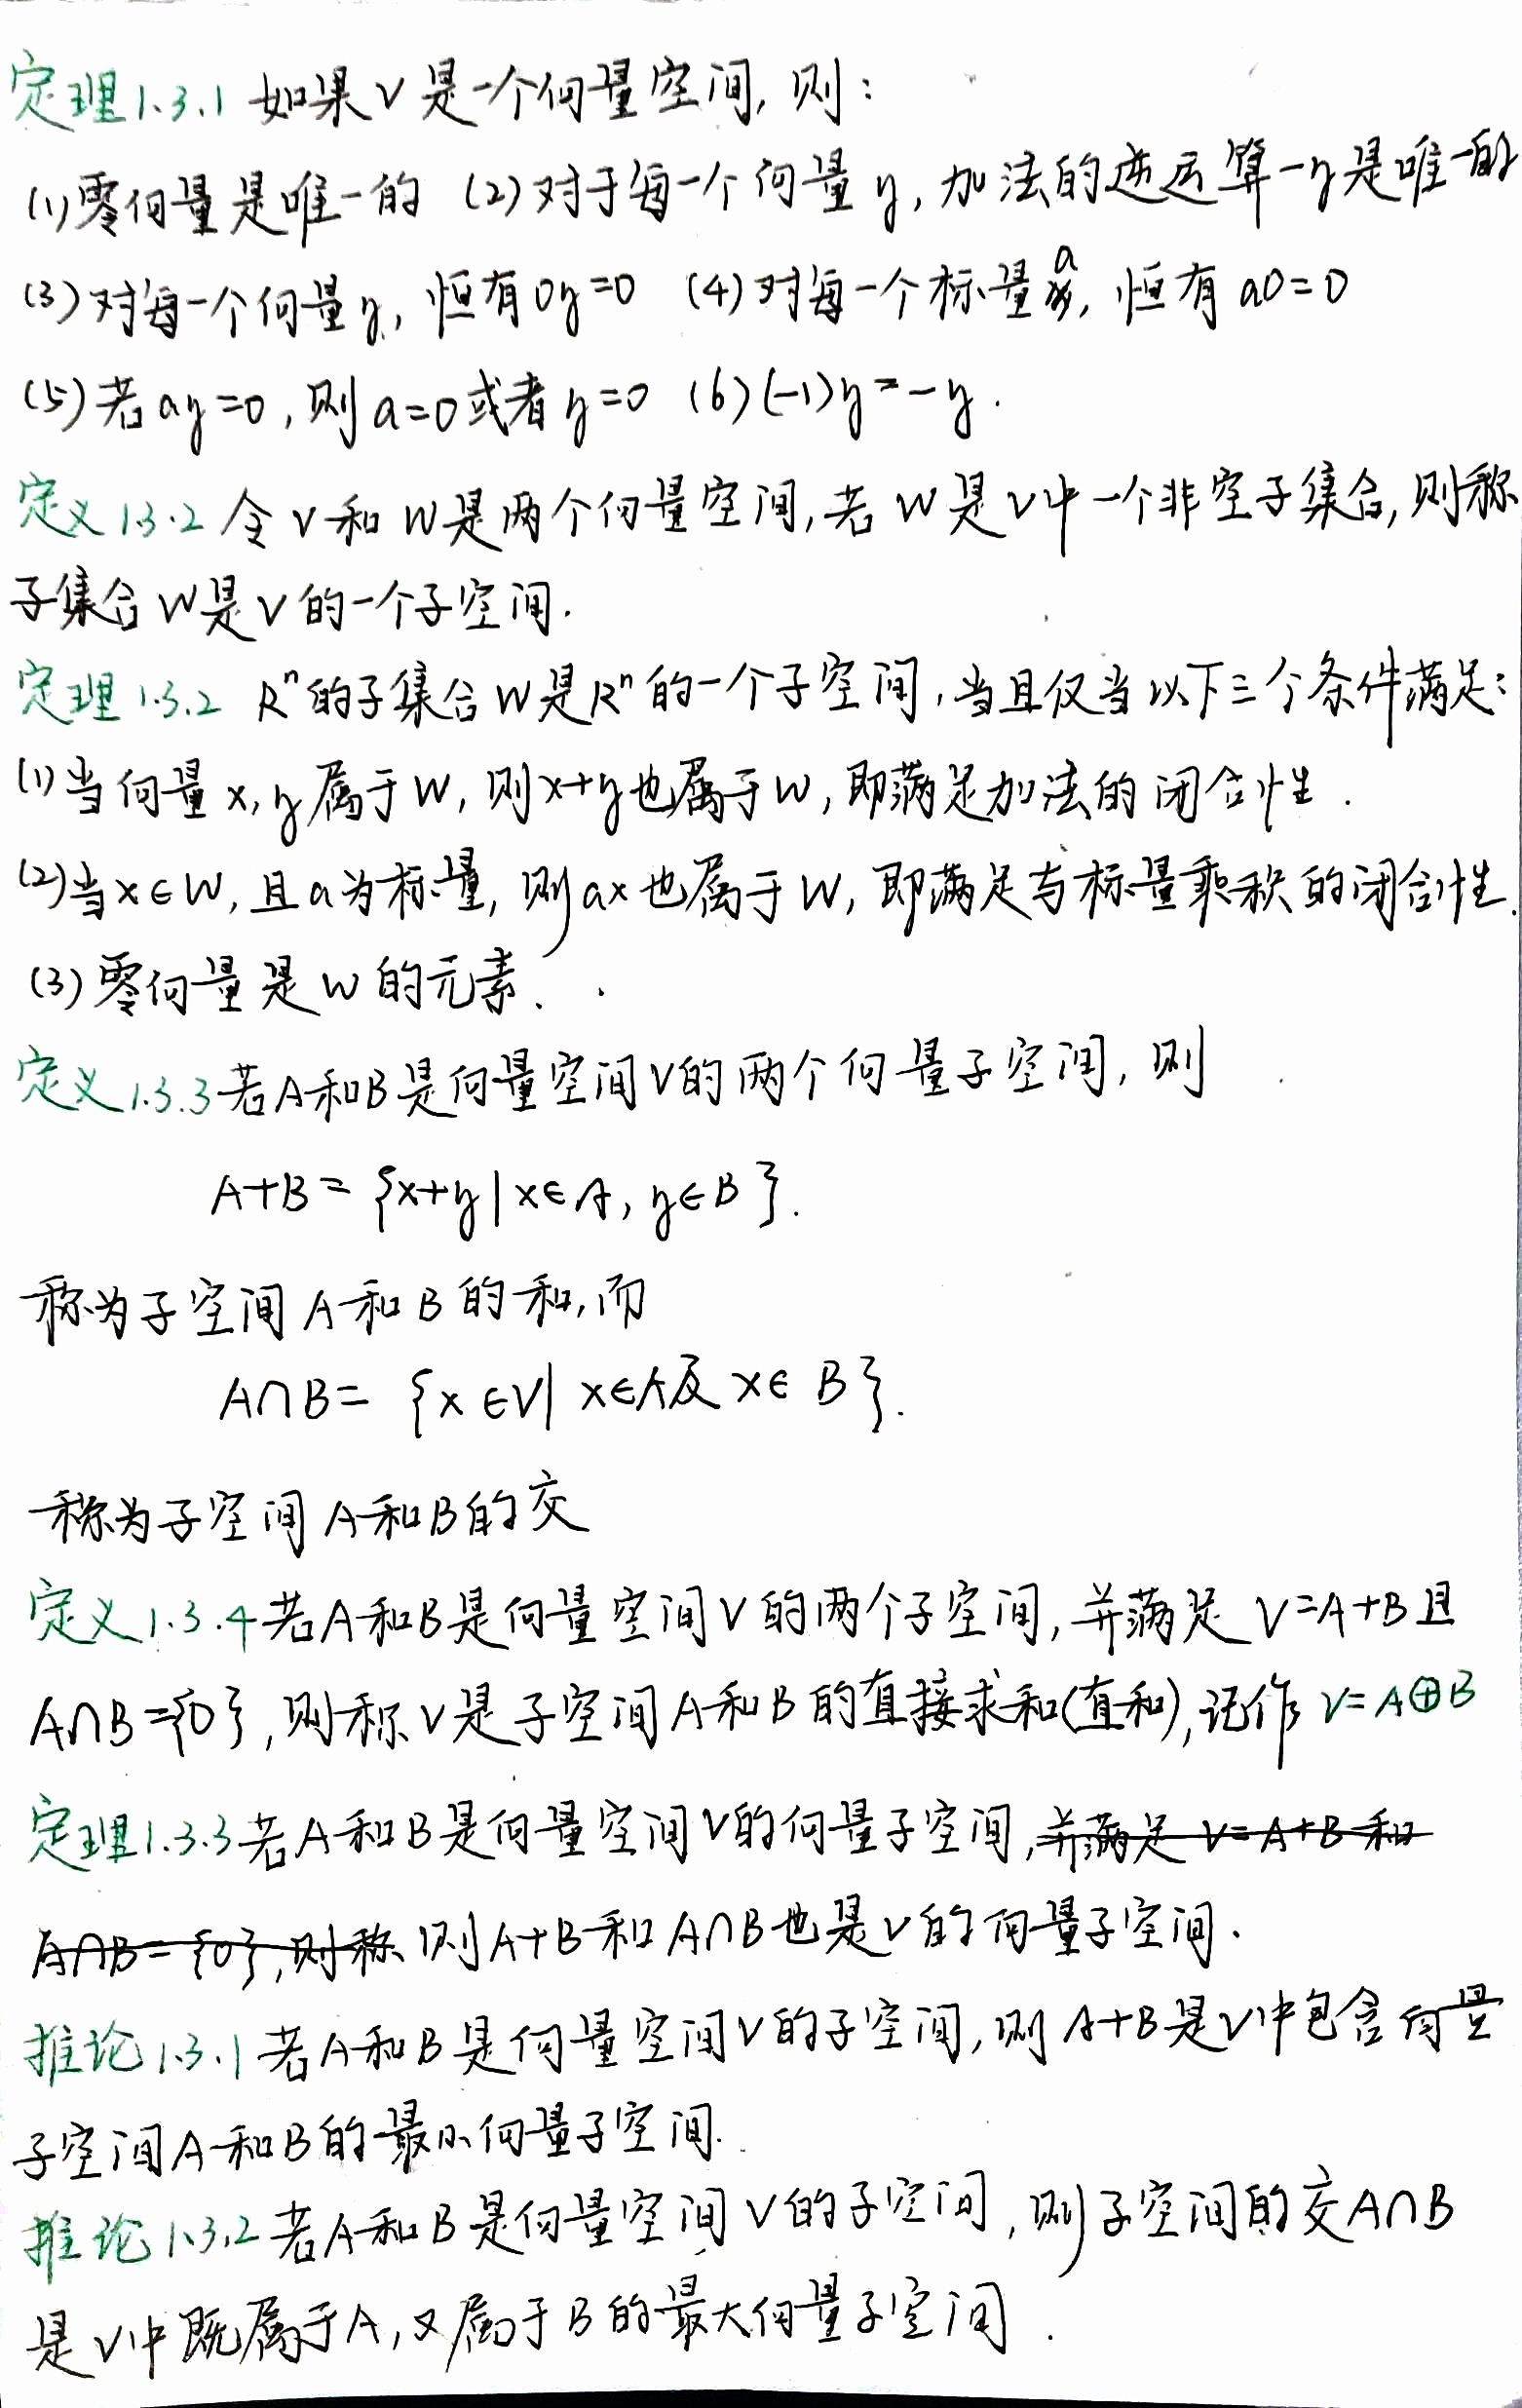 定理1.3.1 如果V是一个向量空间,则:
(1)零向量是唯一的 (2)对于每一个向量y,加法的逆运算-y是唯一的
(3)对每一个向量y,恒有0y=0 (4)对每一个标量a,恒有a0=0
(5)若ay=0,则a=0或者y=0 (6)(-1)y=-y.
定义1.3.2 令V和W是两个向量空间,若W是V中一个非空子集合,则称
子集合W是V的一个子空间.
定理1.3.2 Rⁿ的子集合W是Rⁿ的一个子空间,当且仅当以下三个条件满足:
(1)当向量x,y属于W,则x+y也属于W,即满足加法的闭合性.
(2)当x∈W,且a为标量,则ax也属于W,即满足与标量乘积的闭合性.
(3)零向量是W的元素.
定义1.3.3若A和B是向量空间V的两个向量子空间,则
A+B={x+y|x∈A,y∈B}.
称为子空间A和B的和,而
A∩B={x∈V|x∈A及x∈B}.
称为子空间A和B的交
定义1.3.4若A和B是向量空间V的两个子空间,并满足V=A+B且
A∩B={0},则称V是子空间A和B的直接求和(直和),记作V=A⊕B
定理1.3.3若A和B是向量空间V的向量子空间,并满足V=A+B和
A∩B={0},则称 则A+B和A∩B也是V的向量子空间.
推论1.3.1若A和B是向量空间V的子空间,则A+B是V中包含向量
子空间A和B的最小向量子空间.
推论1.3.2若A和B是向量空间V的子空间,则子空间的交A∩B
是V中既属于A,又属于B的最大向量子空间.